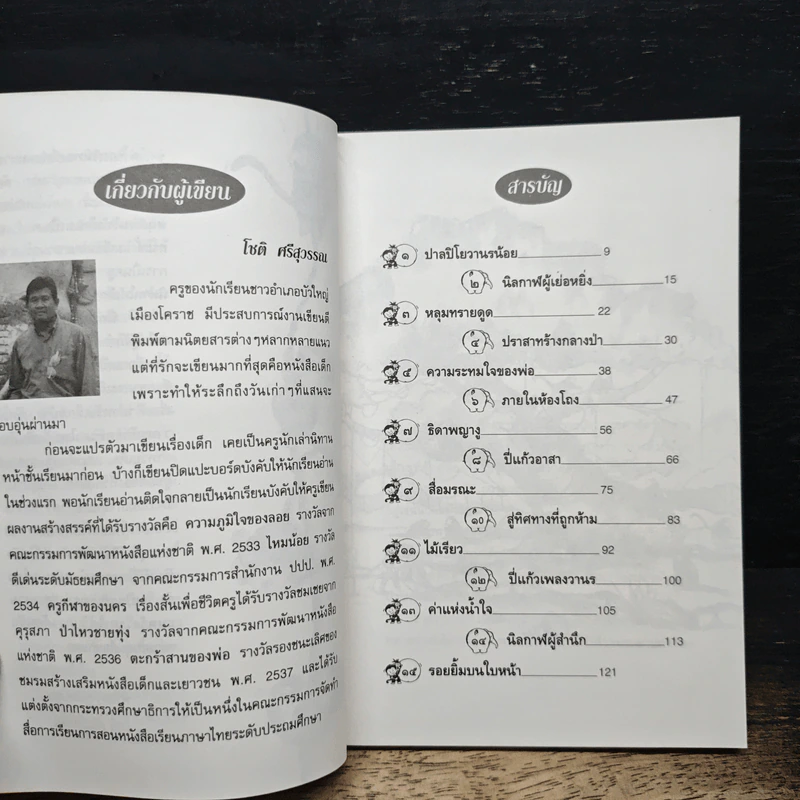 เกี่ยวกับผู้เขียน
โชติ ศรีสุวรรณ
ครูของนักเรียนชาวอำเภอบัวใหญ่
เมืองโคราช มีประสบการณ์งานเขียนตี
พิมพ์ตามนิตยสารต่างๆหลากหลายแนว
แต่ที่รักจะเขียนมากที่สุดคือหนังสือเด็ก
เพราะทำให้ระลึกถึงวันเก่าๆที่แสนจะ
อบอุ่นผ่านมา
ก่อนจะแปรตัวมาเขียนเรื่องเด็ก เคยเป็นครูนักเล่านิทาน
หน้าชั้นเรียนมาก่อน บ้างก็เขียนปิดแปะบอร์ดบังคับให้นักเรียนอ่าน
ในช่วงแรก พอนักเรียนอ่านติดใจกลายเป็นนักเรียนบังคับให้ครูเขียน
ผลงานสร้างสรรค์ที่ได้รับรางวัลคือ ความภูมิใจของลอย รางวัลจาก
คณะกรรมการพัฒนาหนังสือแห่งชาติ พ.ศ. 2533 ไหมน้อย รางวัล
ดีเด่นระดับมัธยมศึกษา จากคณะกรรมการสำนักงาน ปปป. พ.ศ.
2534 ครูกีฬาของนคร เรื่องสั้นเพื่อชีวิตครูได้รับรางวัลชมเชยจาก
คุรุสภา ป่าไหวชายทุ่ง รางวัลจากคณะกรรมการพัฒนาหนังสือ
แห่งชาติ พ.ศ. 2536 ตะกร้าสานของพ่อ รางวัลรองชนะเลิศของ
ชมรมสร้างเสริมหนังสือเด็กและเยาวชน พ.ศ. 2537 และได้รับ
แต่งตั้งจากกระทรวงศึกษาธิการให้เป็นหนึ่งในคณะกรรมการจัดทำ
สื่อการเรียนการสอนหนังสือเรียนภาษาไทยระดับประถมศึกษา
สารบัญ
๑ ปาลปิโยวานรน้อย 9
๒ นิลกาฬผู้เย่อหยิ่ง 15
๓ หลุมทรายดูด 22
๔ ปราสาทร้างกลางป่า 30
๕ ความระทมใจของพ่อ 38
๖ ภายในห้องโถง 47
๗ ธิดาพญางู 56
๘ ปี่แก้วอาสา 66
๙ สื่อมรณะ 75
๑๐ สู่ทิศทางที่ถูกห้าม 83
๑๑ ไม้เรียว 92
๑๒ ปี่แก้วเพลงวานร 100
๑๓ ค่าแห่งน้ำใจ 105
๑๔ นิลกาฬผู้สำนึก 113
๑๕ รอยยิ้มบนใบหน้า 121